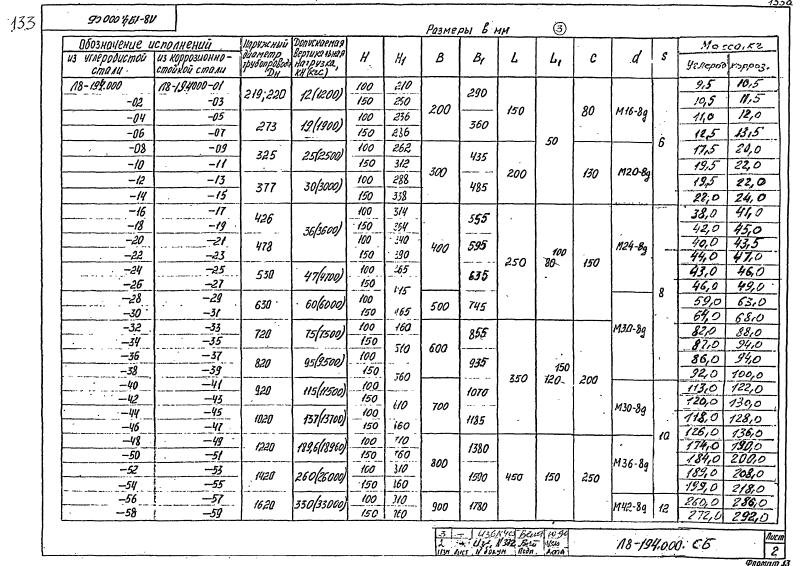 133
133а
Размеры в мм ③
Обозначение исполнений | Наружный диаметр трубопровода Dн | Допускаемая вертикальная нагрузка, кН (кгс) | H | H₁ | B | B₁ | L | L₁ | c | d | s | Масса, кг
из углеродистой стали | из коррозионно-стойкой стали | Углерод. | корроз.
Л8-194.000 | Л8-194.000-01 | 219; 220 | 12(1200) | 100 | 210 | 200 | 290 | 150 | 50 | 80 | М16-8g | 6 | 9,5 | 10,5
-02 | -03 | 150 | 260 | 10,5 | 11,5
-04 | -05 | 273 | 19(1900) | 100 | 236 | 360 | 11,0 | 12,0
-06 | -07 | 150 | 12,5 | 13,5
-08 | -09 | 325 | 25(2500) | 100 | 262 | 300 | 435 | 200 | 130 | М20-8g | 17,5 | 20,0
-10 | -11 | 150 | 312 | 19,5 | 22,0
-12 | -13 | 377 | 30(3000) | 100 | 288 | 485 | 19,5 | 22,0
-14 | -15 | 150 | 338 | 22,0 | 24,0
-16 | -17 | 426 | 36(3600) | 100 | 314 | 400 | 555 | 250 | 100 | 80 | 150 | М24-8g | 8 | 38,0 | 41,0
-18 | -19 | 150 | 42,0 | 45,0
-20 | -21 | 478 | 100 | 340 | 595 | 40,0 | 43,5
-22 | -23 | 150 | 390 | 44,0 | 47,0
-24 | -25 | 530 | 47(4700) | 100 | 365 | 635 | 43,0 | 46,0
-26 | -27 | 150 | 46,0 | 49,0
-28 | -29 | 630 | 60(6000) | 100 | 500 | 745 | М30-8g | 59,0 | 63,0
-30 | -31 | 150 | 465 | 64,0 | 68,0
-32 | -33 | 720 | 75(7500) | 100 | 600 | 855 | 350 | 150 | 120 | 200 | 82,0 | 88,0
-34 | -35 | 150 | 510 | 87,0 | 94,0
-36 | -37 | 820 | 95(9500) | 100 | 935 | 86,0 | 94,0
-38 | -39 | 150 | 560 | 92,0 | 100,0
-40 | -41 | 920 | 115(11500) | 100 | 700 | 1070 | М30-8g | 10 | 113,0 | 122,0
-42 | -43 | 150 | 610 | 120,0 | 130,0
-44 | -45 | 1020 | 137(13700) | 100 | 1185 | 118,0 | 128,0
-46 | -47 | 150 | 126,0 | 136,0
-48 | -49 | 1220 | 189,6(18960) | 100 | 800 | 1380 | 450 | 150 | 250 | М36-8g | 174,0 | 190,0
-50 | -51 | 150 | 184,0 | 200,0
-52 | -53 | 1420 | 260(26000) | 100 | 1590 | 189,0 | 208,0
-54 | -55 | 150 | 199,0 | 218,0
-56 | -57 | 1620 | 330(33000) | 100 | 900 | 1780 | М42-8g | 12 | 260,0 | 286,0
-58 | -59 | 150 | 272,0 | 292,0
Изм Лист № докум Подп. Дата
Л8-194.000. СБ
Лист
2
Формат А3